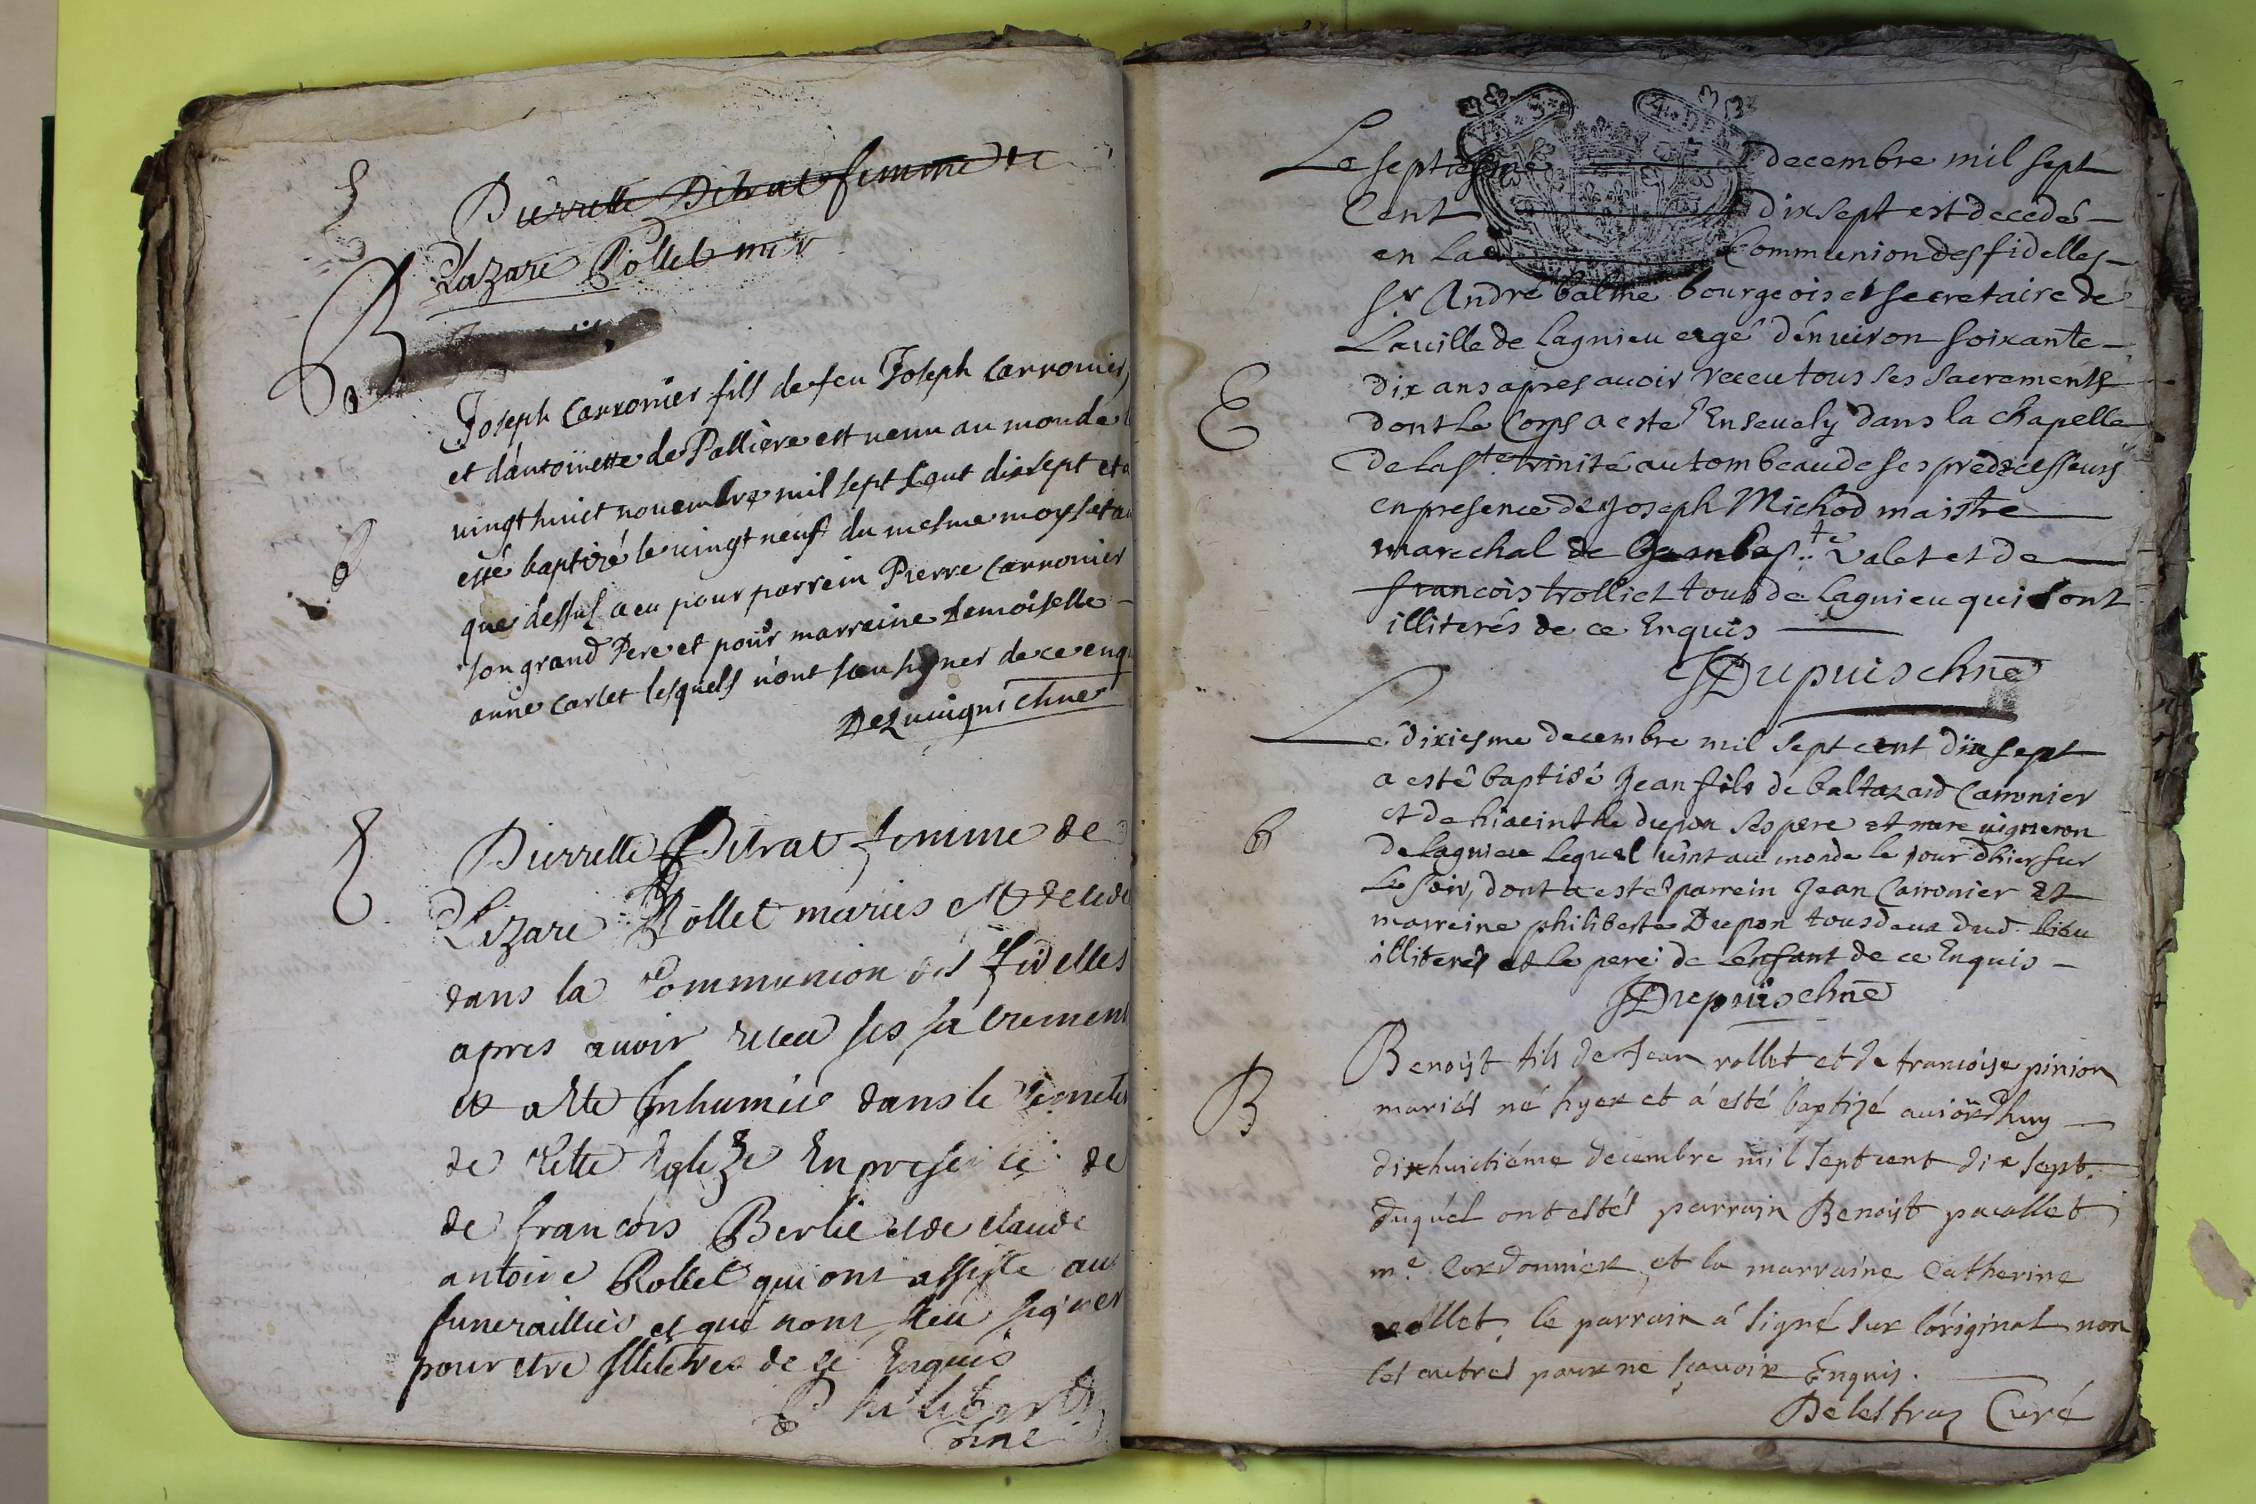 Pierrette Ditrat femme de
Lazare Rollet mir
B
Joseph Carronier fils de feu Joseph Carronier
et d'antoinette de Pallière est venu au monde l
vingt huict novembre mil sept cent dix sept et a
esté baptizé le vingt neuf du mesme moys et an
que dessus a eu pour parrein Pierre Carronier
son grand Pere et pour marreine Demoiselle
anne Carlet lesquels n'ont sceu signer de ce enq
Deluvigni chne
b
Pierrette Ditrat femme de
Lazare Rollet mariés est decede
dans la Communion des fidelles
apres avoir receu ses sacremens
et a este Inhumée dans le cimete
de cette Eglize En presence de
de francois Berlie et de claude
antoine Rollet qui ont assiste aux
funerailles et qui nont sceu signer
pour etre Illiteres de ce Enquis
Philibert
chne
Le septiesme decembre mil sept
Cent dix sept est decedé
en la Communion des fidelles
Sr. André balme bourgeois et secretaire de
La ville de Lagnieu agé d'environ soixante
dix ans apres avoir receu tous ses sacrements
dont le Corps a esté Ensevely dans la chapelle
de la Ste. trinité au tombeau de ses predecesseurs
en presence de Joseph Michod maistre
marechal de Valet et de
francois trolliet tous de Lagnieu qui sont
illiterés de ce Enquis
Dupuis chne
E
Le dixiesme decembre mil sept cent dix sept
a esté baptisé Jean fils de baltazard Carronier
et de hiacinthe dupon ses pere et mere vigneron
de Lagnieu lequel vint au monde le jour d'hier sur
Le soir, dont a esté parrein Jean Carronier et
marreine philiberte Dupon tous deux dud. lieu
illiterés et le pere de lenfant de ce Enquis
Dupuis chne
b
Benoist fils de Jean rollet et de francoise pinion
mariés né hyer et á esté baptizé aujourdhuy
dixhuictiéme decembre mil sept cent dix sept.
duquél ont estés parrain Benoist pacallet
me. Cordonnier et la marraine Catherine
rollet, le parrain á signé sur l'original non
les autres pour ne sçavoir Enquis.
Delestraz Curé
B